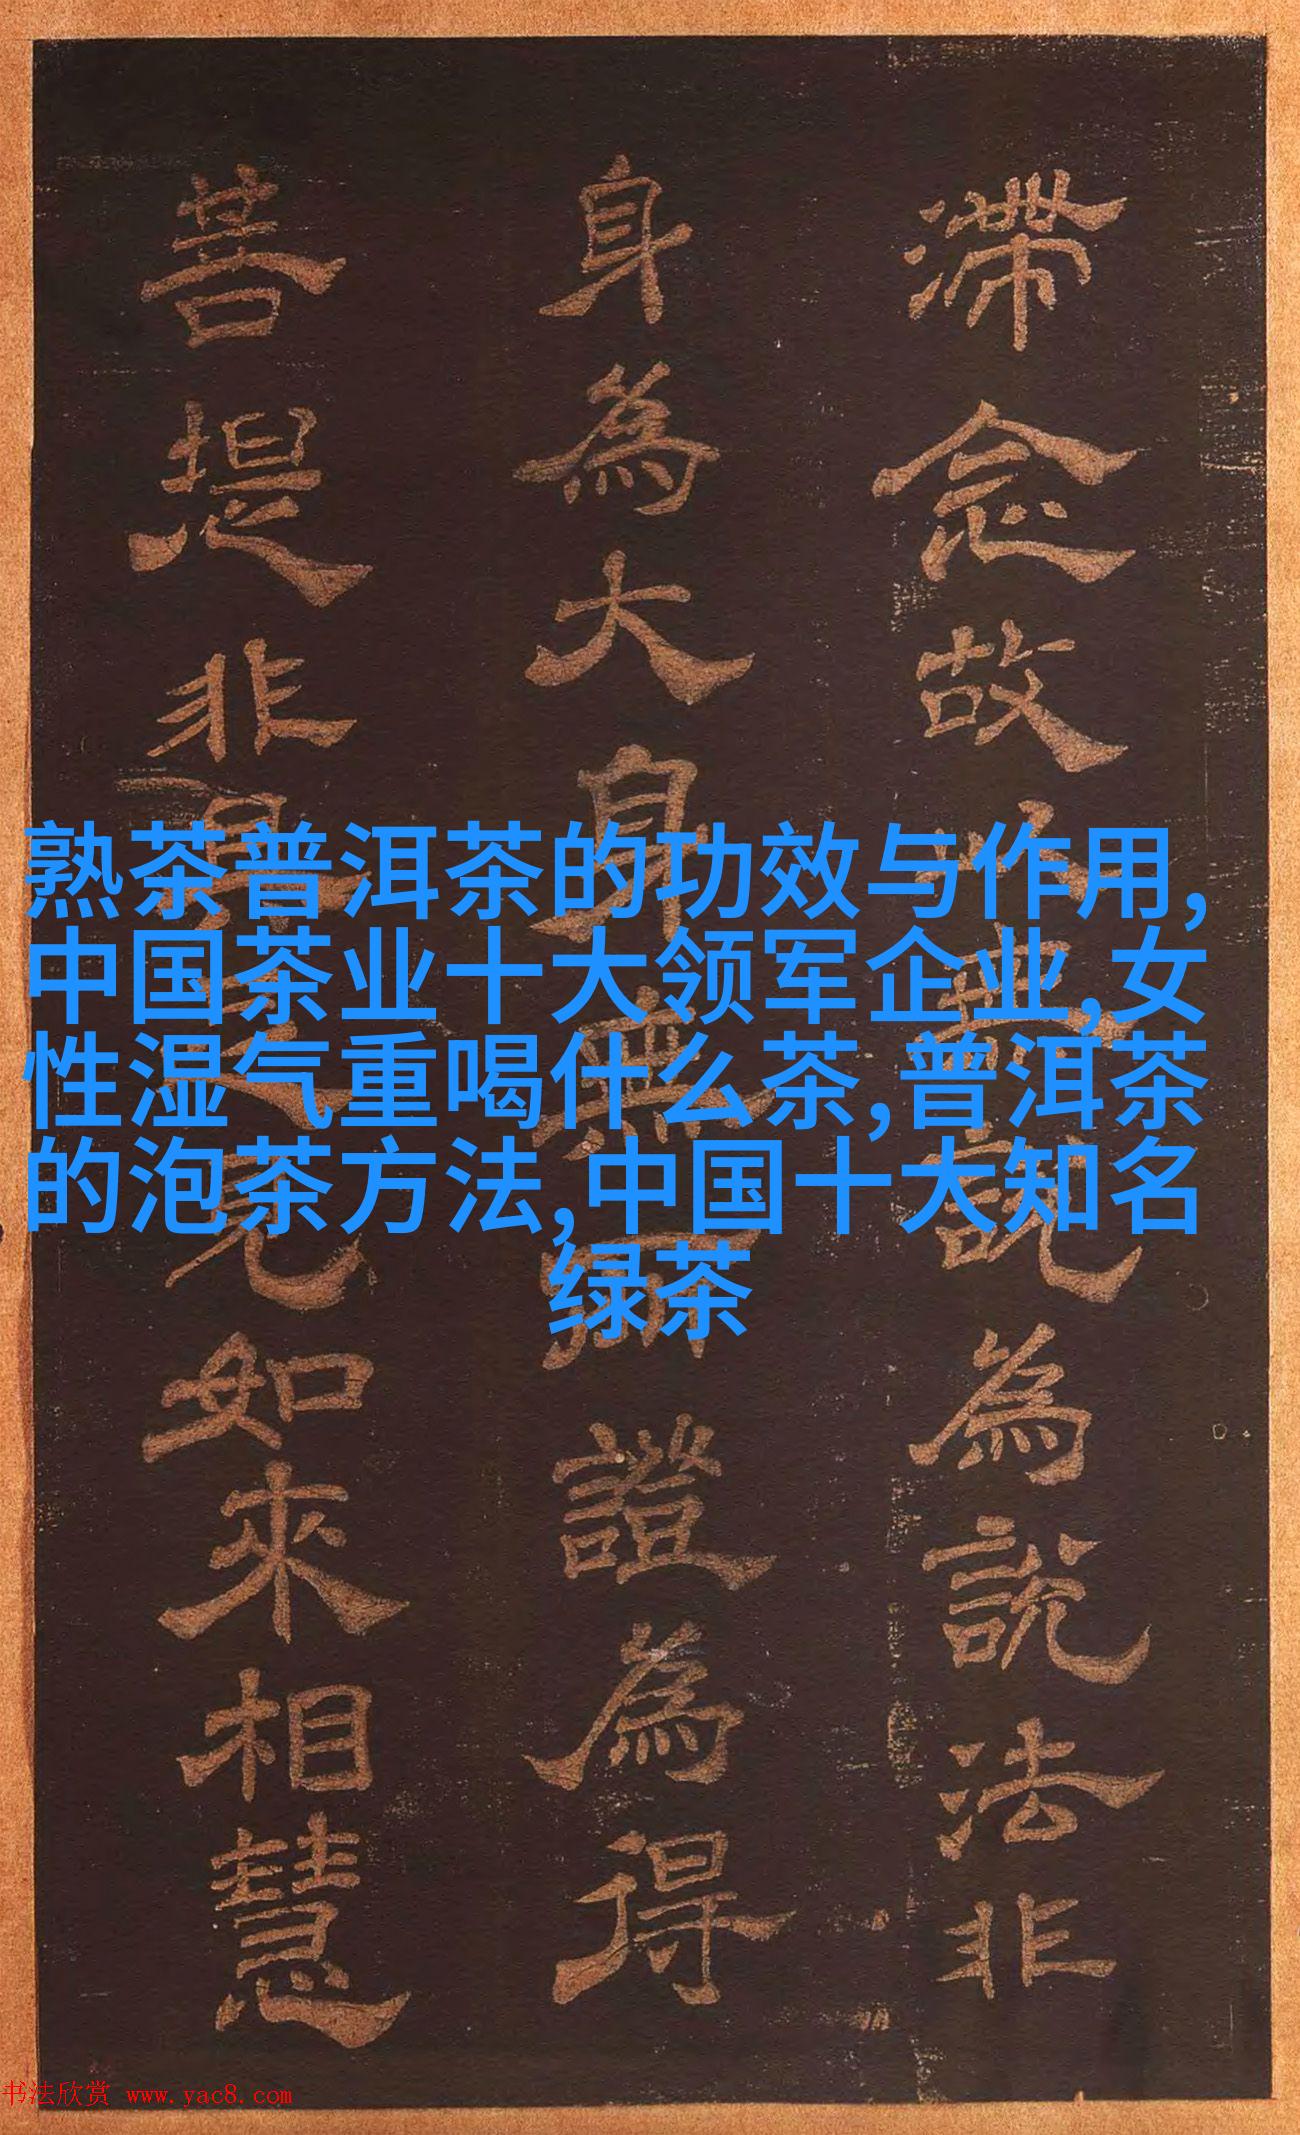 熟茶普洱茶的功效与作用,
中国茶业十大领军企业,女
性湿气重喝什么茶,普洱茶
的泡茶方法,中国十大知名
绿茶
滯念故以無說為說法非
身為大身無所證為得
菩提非具見如來相慧
书法欣赏 www.yac8.com